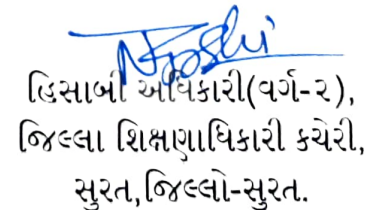 હિસાબી અધિકારી(વર્ગ-૨),
જિલ્લા શિક્ષણાધિકારી કચેરી,
સુરત,જિલ્લો-સુરત.